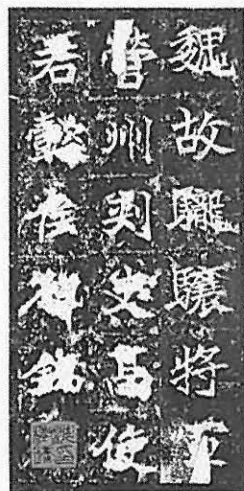 魏故龍驤將軍
營州刺史高使
君懿侯碑銘